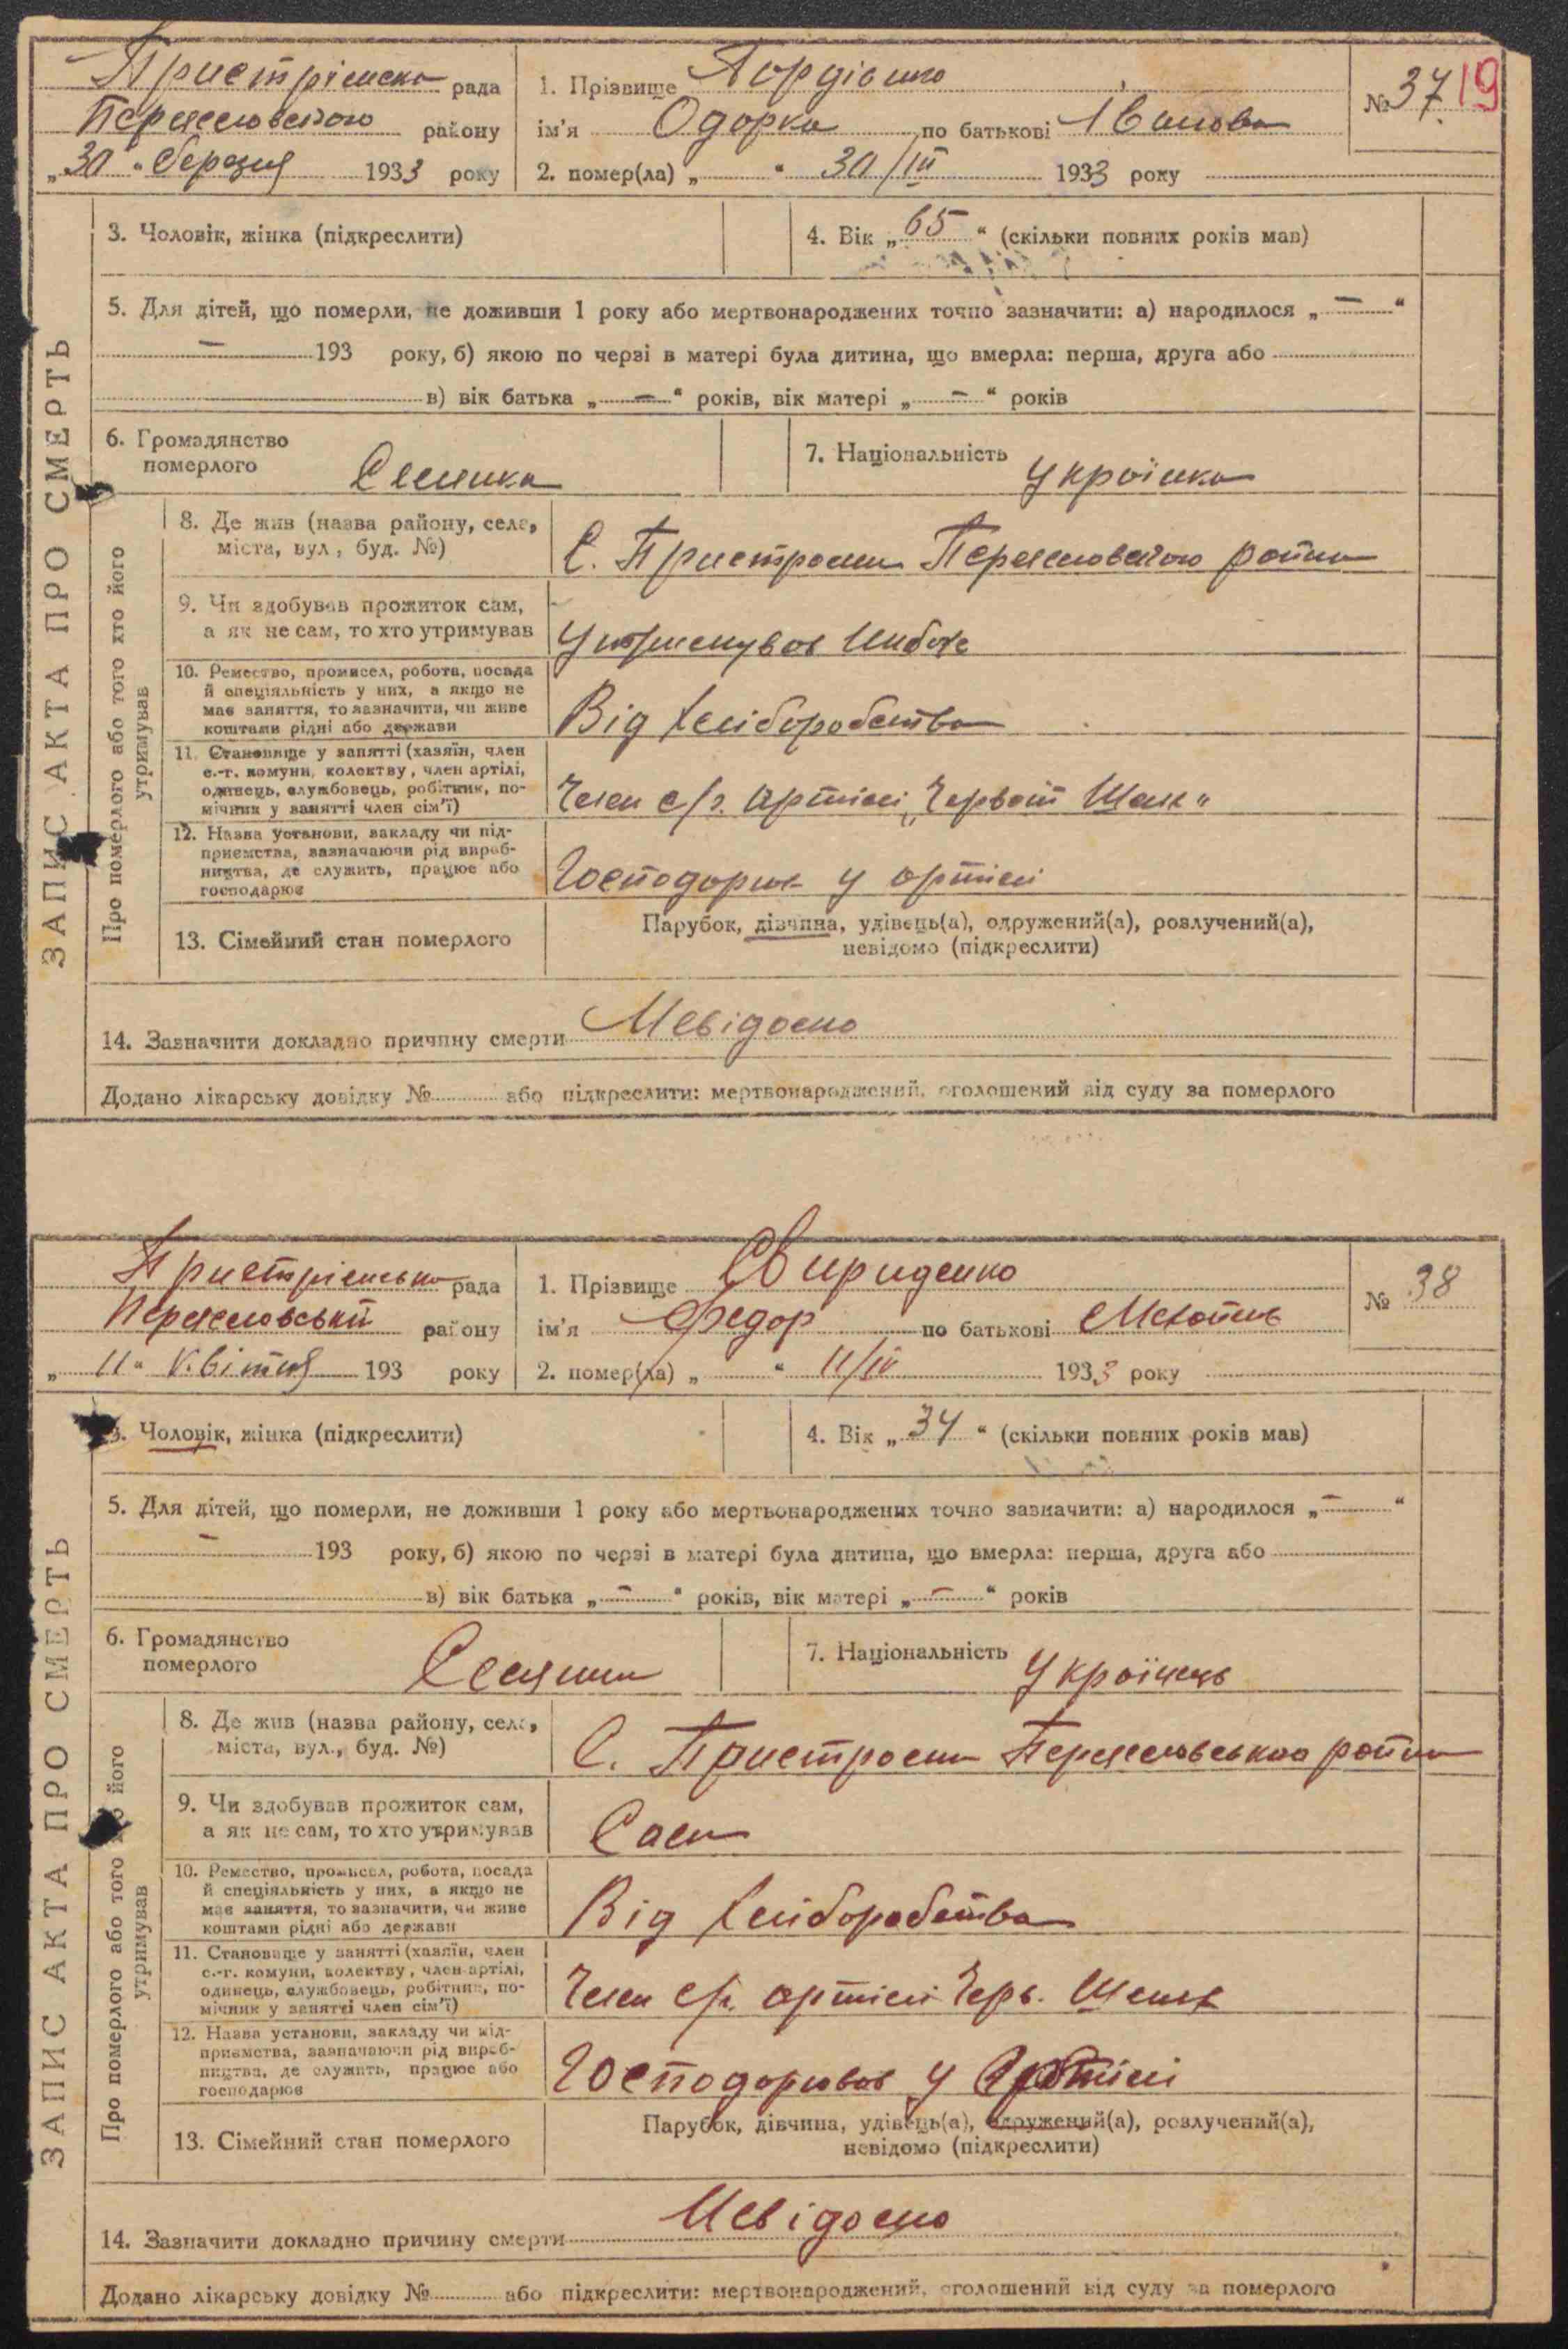 Пристрімська рада
Переяславського району
„30" березня 1933 року
1. Прізвище Гордієнко
ім'я Одарка по батькові Іванова
2. помер(ла) „ " 30/III 1933 року
№ 37. 19
ЗАПИС АКТА ПРО СМЕРТЬ
3. Чоловік, жінка (підкреслити)
4. Вік „65" (скільки повних років мав)
5. Для дітей, що померли, не доживши 1 року або мертвонароджених точно зазначити: а) народилося „—"
— 193 року, б) якою по черзі в матері була дитина, що вмерла: перша, друга або
в) вік батька „—" років, вік матері „—" років
6. Громадянство
померлого Селянка
7. Національність Українка
Про померлого або того хто його
утримував
8. Де жив (назва району, села,
міста, вул., буд. №) С. Пристроми Переяславського району
9. Чи здобував прожиток сам,
а як не сам, то хто утримував Утримував
10. Ремество, промисел, робота, посада
й спеціяльність у них, а якщо не
має заняття, то зазначити, чи живе
коштами рідні або держави Від хліборобства
11. Становище у занятті (хазяїн, член
с.-г. комуни, колектву, член артілі,
одинець, службовець, робітник, по-
мічник у занятті член сім'ї) Член с/г. артілі „Червоний Шлях"
12. Назва установи, закладу чи під-
приємства, зазначаючи рід вироб-
ництва, де служить, працює або
господарює Господарює у артілі
13. Сімейний стан померлого
Парубок, дівчина, удівець(а), одружений(а), розлучений(а),
невідомо (підкреслити)
14. Зазначити докладно причину смерти Невідомо
Додано лікарську довідку № або підкреслити: мертвонароджений, оголошений від суду за померлого
Пристрімська рада
Переяславський району
„11" Квітня 193 року
1. Прізвище Свириденко
ім'я Федор по батькові
2. помер(ла) „ " 11/IV 1933 року
№ 38
ЗАПИС АКТА ПРО СМЕРТЬ
3. Чоловік, жінка (підкреслити)
4. Вік „34" (скільки повних років мав)
5. Для дітей, що померли, не доживши 1 року або мертвонароджених точно зазначити: а) народилося „—"
— 193 року, б) якою по черзі в матері була дитина, що вмерла: перша, друга або
в) вік батька „—" років, вік матері „—" років
6. Громадянство
померлого Селянин
7. Національність Українець
Про померлого або того хто його
утримував
8. Де жив (назва району, села,
міста, вул., буд. №) С. Пристроми Переяславського району
9. Чи здобував прожиток сам,
а як не сам, то хто утримував Сам
10. Ремество, промисел, робота, посада
й спеціяльність у них, а якщо не
має заняття, то зазначити, чи живе
коштами рідні або держави Від хліборобства
11. Становище у занятті (хазяїн, член
с.-г. комуни, колектву, член артілі,
одинець, службовець, робітник, по-
мічник у занятті член сім'ї) Член с/г. артілі Черв. Шлях
12. Назва установи, закладу чи під-
приємства, зазначаючи рід вироб-
ництва, де служить, працює або
господарює Господорював у Артілі
13. Сімейний стан померлого
Парубок, дівчина, удівець(а), одружений(а), розлучений(а),
невідомо (підкреслити)
14. Зазначити докладно причину смерти Невідомо
Додано лікарську довідку № або підкреслити: мертвонароджений, оголошений від суду за померлого